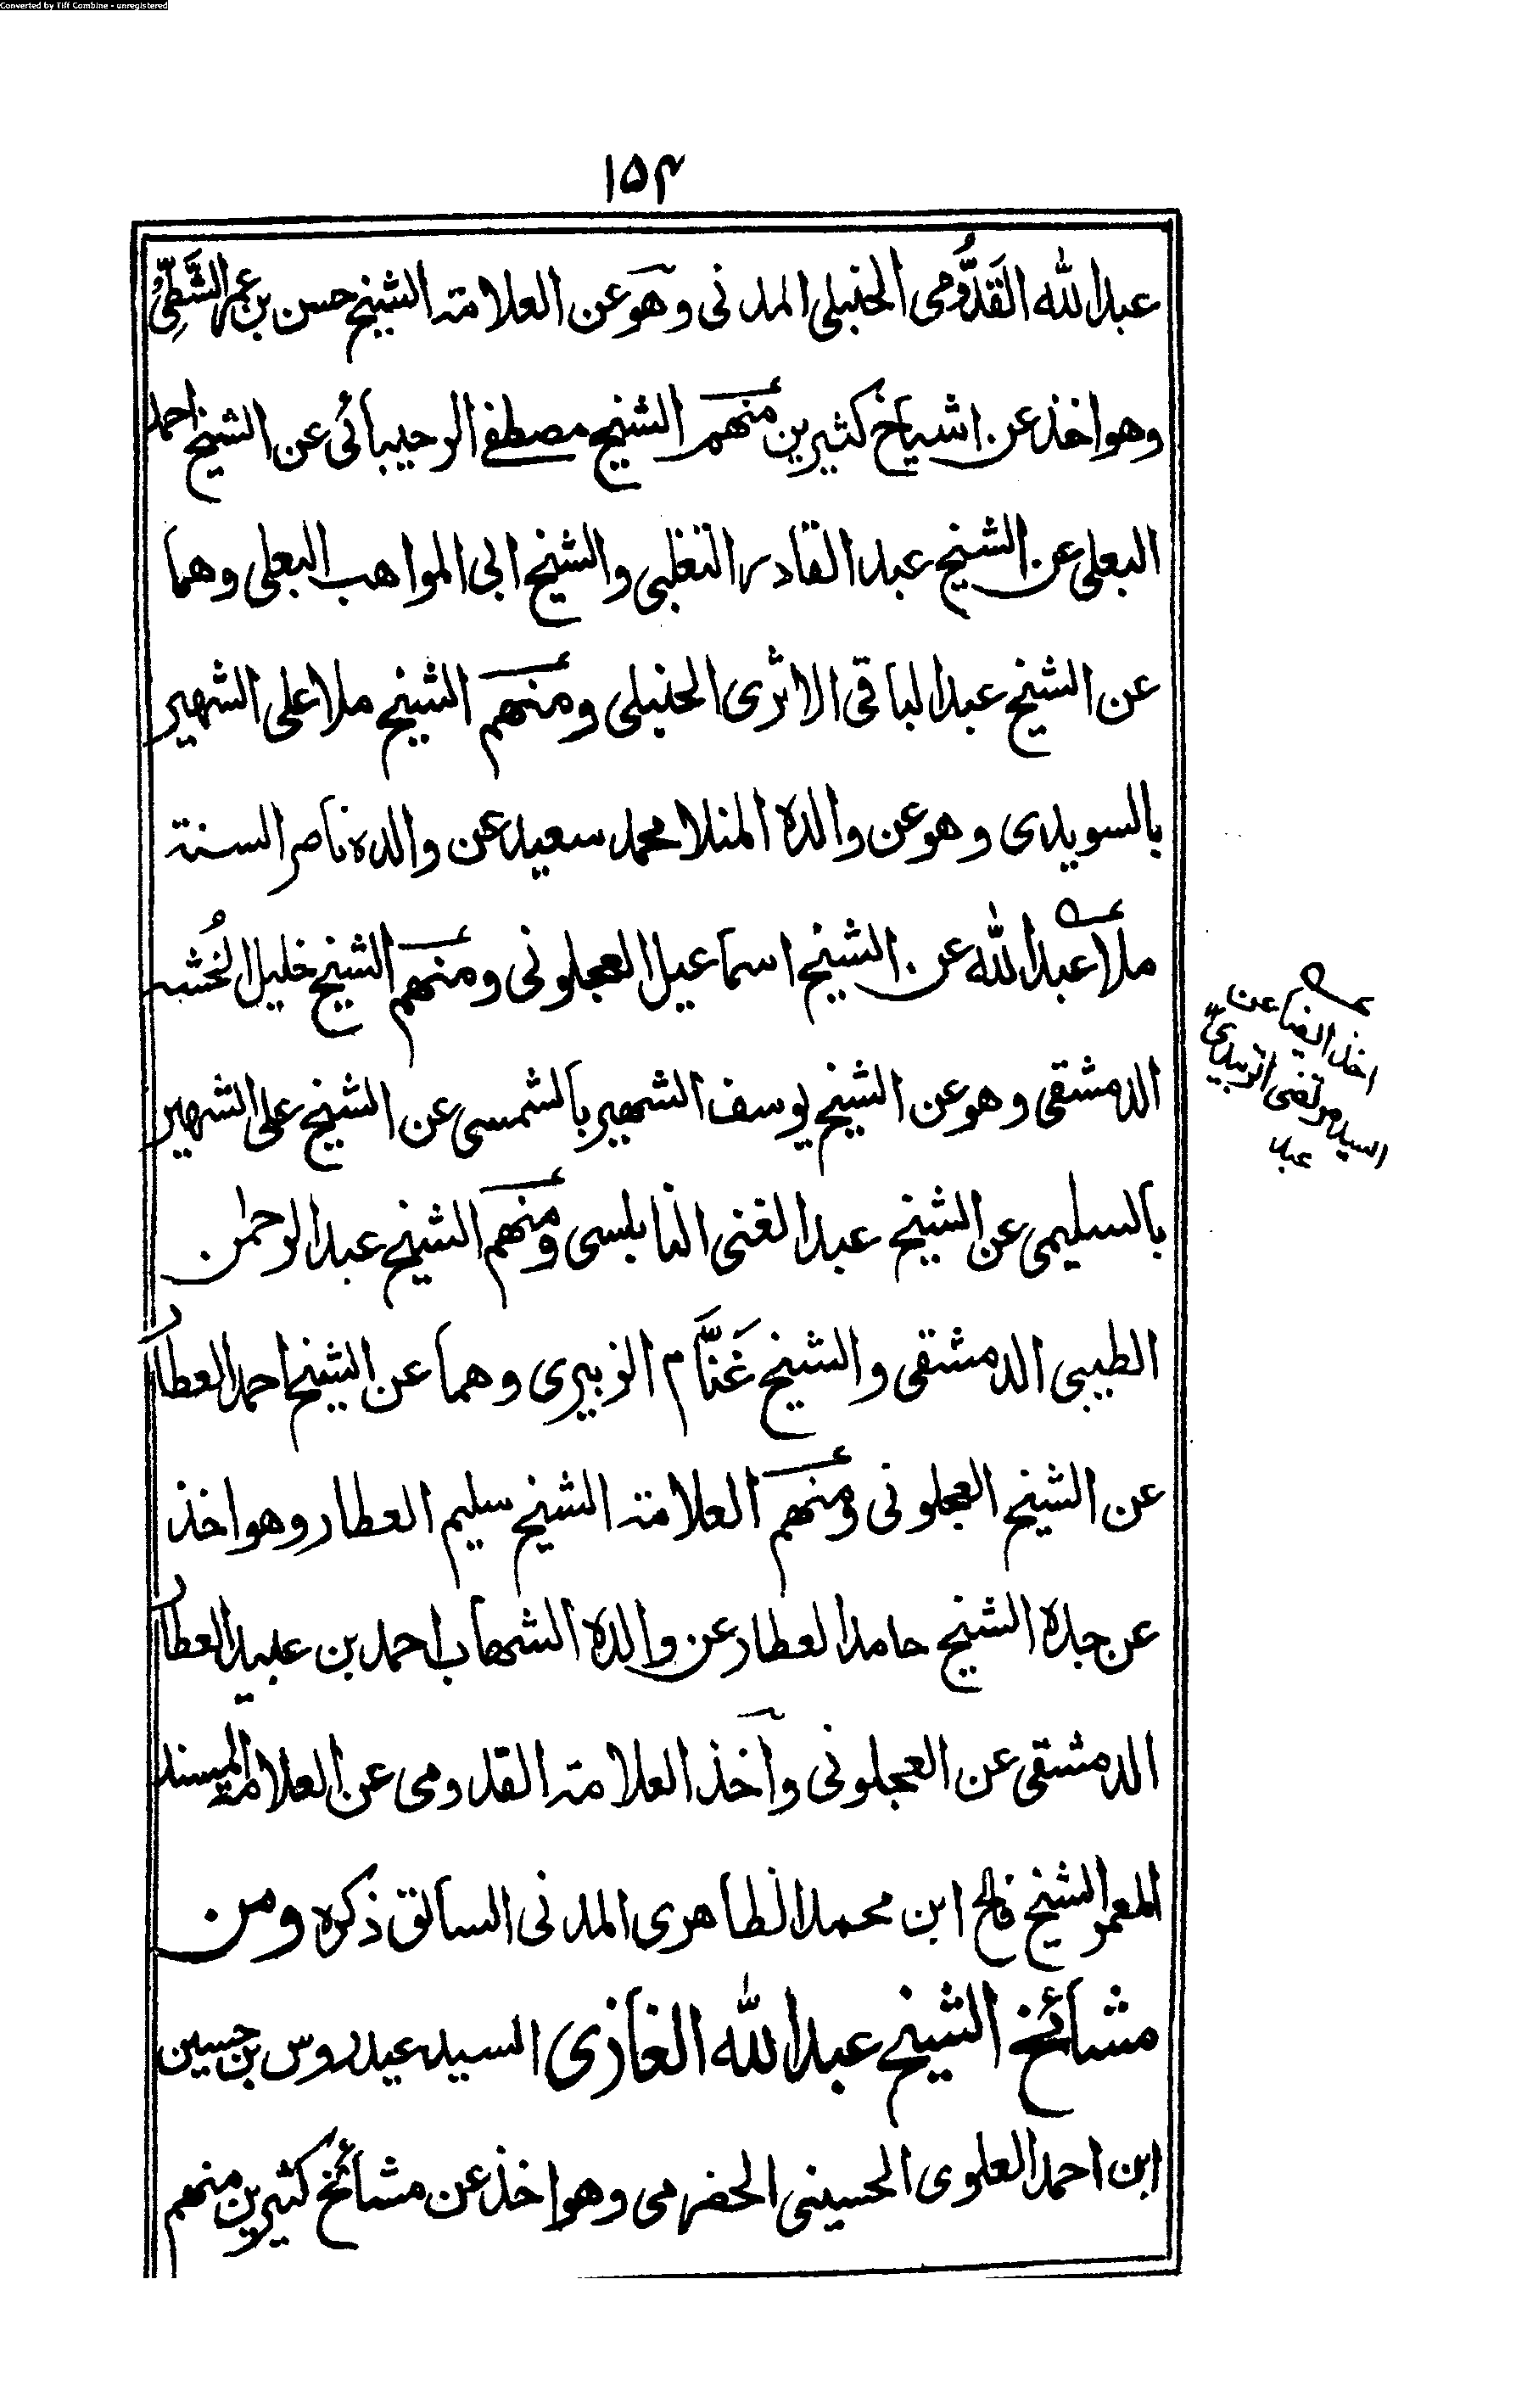 Converted by Tiff Combine - unregistered
۱۵۴
عبدالله القَدُّومی الحنبلی المدنی وهو عن العلامة الشیخ حسن بن عمر الشَّطِّیُّ
وهو اخذ عن اشیاخ کثیرین منهم الشیخ مصطفے الرحیبائی عن الشیخ احمد
البعلی عن الشیخ عبدالقادر التغلبی والشیخ ابی المواهب البعلی وهما
عن الشیخ عبدالباقی الاثری الحنبلی ومنهم الشیخ ملا علی الشهیر
بالسویدی وهو عن والده المنلا محمد سعید عن والده ناصر السنة
ملا عبدالله عن الشیخ اسماعیل العجلونی ومنهم الشیخ خلیل الخُشه
الدمشقی وهو عن الشیخ یوسف الشهیر بالشمسی عن الشیخ علی الشهیر
بالسلیمی عن الشیخ عبدالغنی النابلسی ومنهم الشیخ عبدالرحمٰن
الطیبی الدمشقی والشیخ غَنَّام الزبیری وهما عن الشیخ احمد العطار
عن الشیخ العجلونی ومنهم العلامة الشیخ سلیم العطار وهو اخذ
عن جده الشیخ حامد العطار عن والده الشهاب احمد بن عبید العطار
الدمشقی عن العجلونی وآخذ العلامة القدومی عن العلامة المسند
المعمر الشیخ فالح ابن محمد الظاهری المدنی السابق ذکره ومن
مشائخ الشیخ عبدالله الغازی السید عیدروس بن حسین
ابن احمد العلوی الحسینی الحضرمی وهو اخذ عن مشائخ کثیرین منهم
اخذ ایضا عن
السید مرتضی الزبیدیّ
عبد